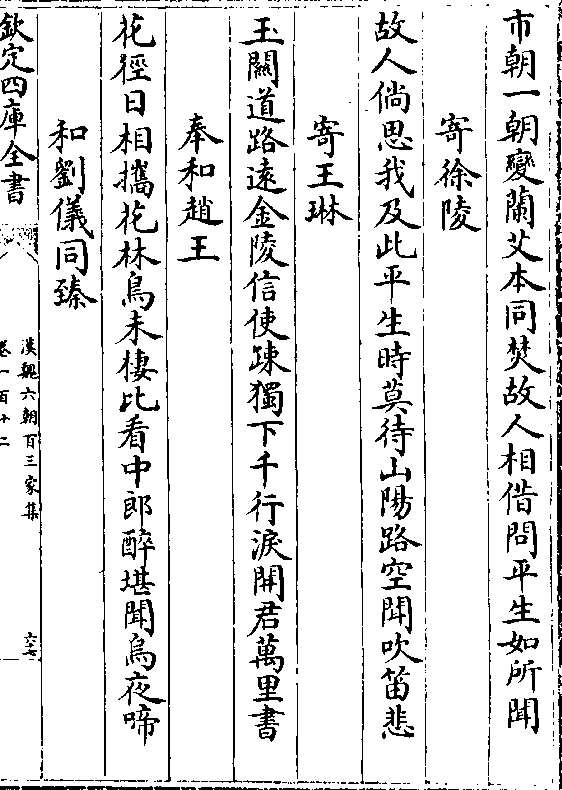 市朝一朝變蘭艾本同焚故人相借問平生如所聞
寄徐陵
故人倘思我及此平生時莫待山陽路空聞吹笛悲
寄王琳
玉關道路遠金陵信使疎獨下千行淚開君萬里書
奉和趙王
花徑日相攜花林鳥未棲比看中郎醉堪聞烏夜啼
和劉儀同臻
欽定四庫全書
漢魏六朝百三家集
卷一百十二
六七